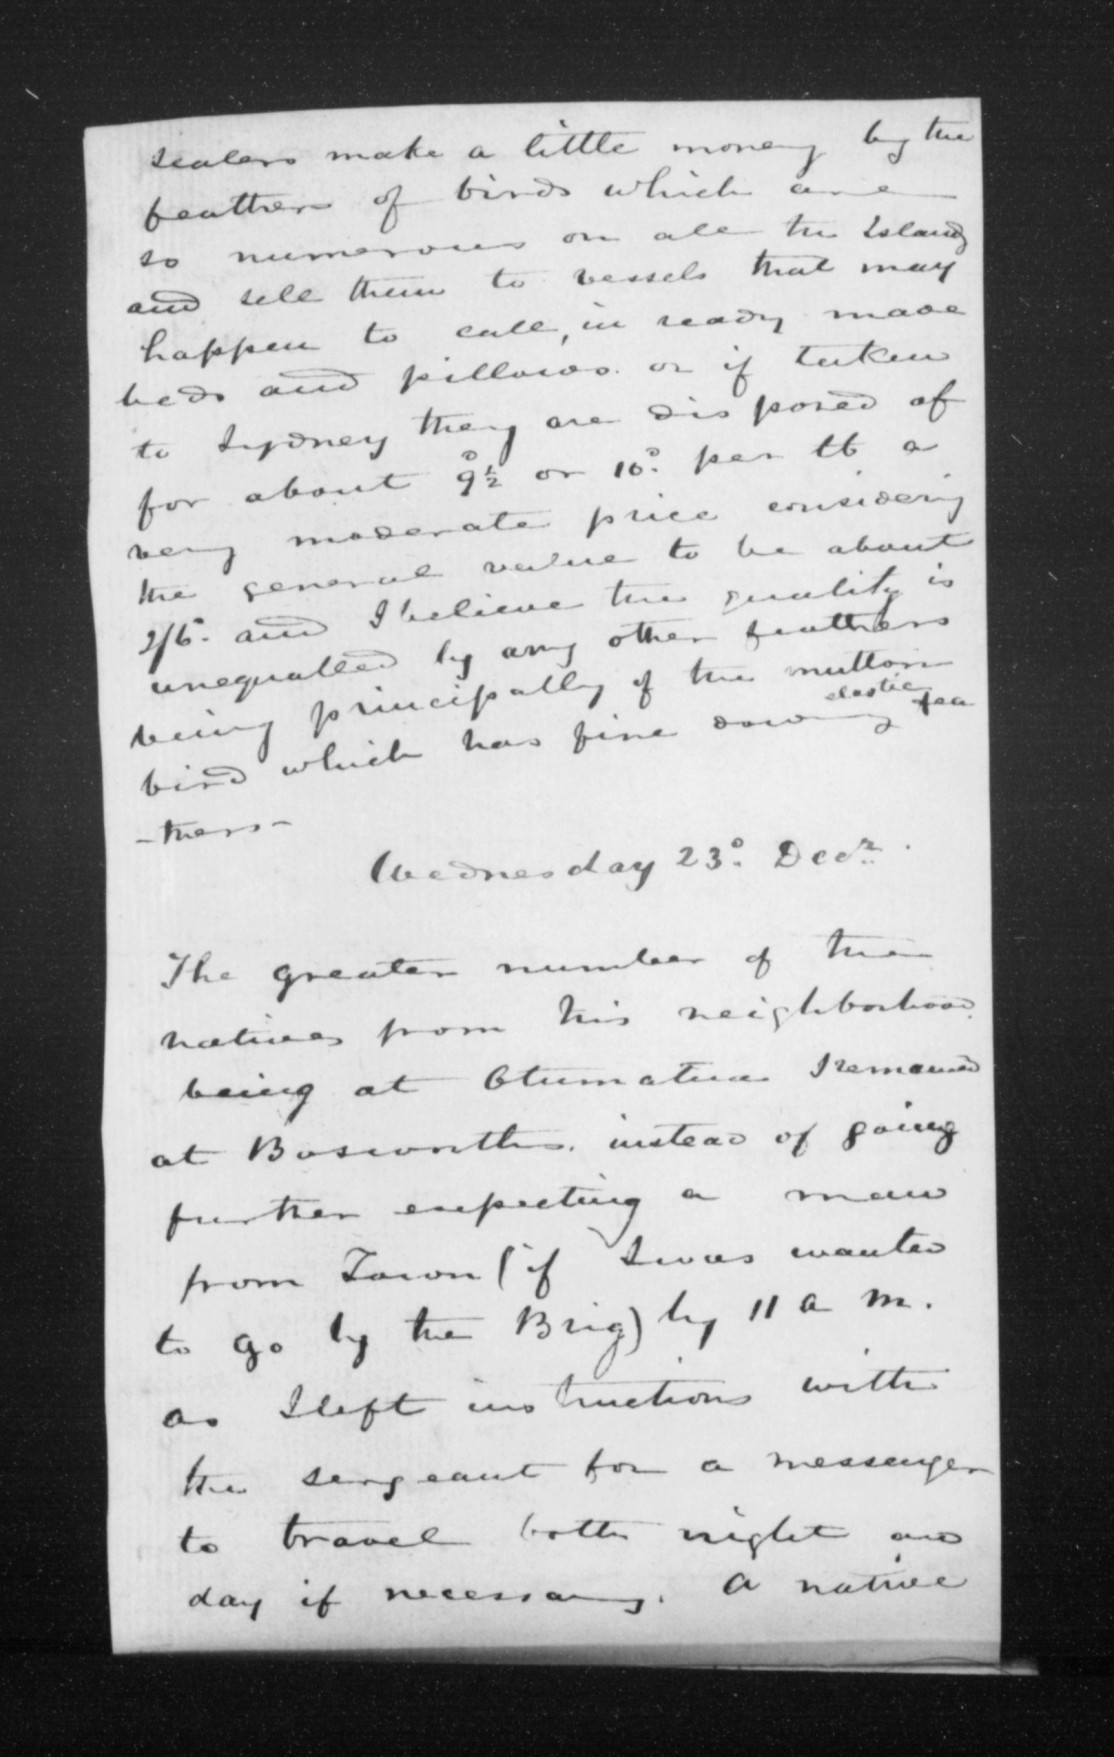 sealers make a little money by the
feathers of birds which are
so numerous on all the Islands
and sell them to vessels that may
happen to call, in ready made
beds and pillows. or if taken
to Sydney they are disposed of
for about 9½ᴰ or 10ᴰ. per lb a
very moderate price considering
the general value to be about
2/6. and I believe the quality is
unequalled by any other feathers
being principally of the mutton
bird which has fine downy elastic fea
-thers-
Wednesday 23ᴰ. Decʳ.
The greater number of the
natives from this neighborhood
being at Otumatua I remained
at Bosworths. instead of going
further expecting a man
from Town (if I was wanted
to go by the Brig) by 11 a m.
as I left instructions with
the sergeant for a messenger
to travel both night and
day if necessary. A native